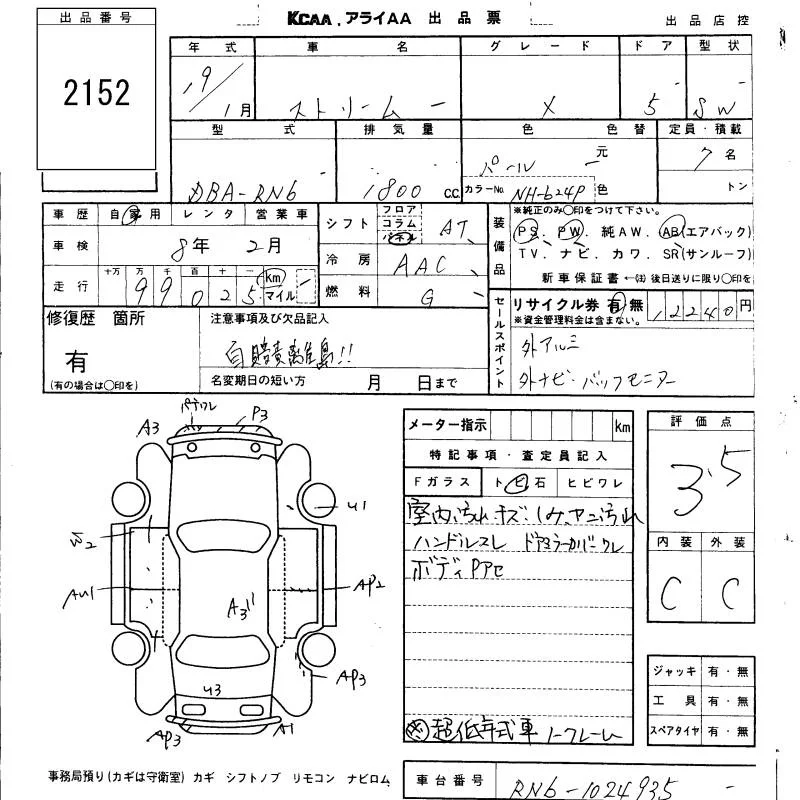 出品番号 KCAA、アライAA 出品票 出品店控
2152
年式 車名 グレード ドア 型状
19/1月 ストリーム X 5 SW
型式 排気量 色 色替 定員・積載
DBA-RN6 1800 CC パール 元色 7名
カラーNo. NH-624P トン
車歴 自家用 レンタ 営業車
車検 8年 2月
走行 十万 万 千 百 十 一
99025 Km マイル
シフト フロア コラム パネル AT
冷房 AAC
燃料 G
装備品 ※純正のみ○印をつけて下さい。
PS PW 純AW. AB(エアバック)
TV. ナビ. カワ. SR(サンルーフ)
新車保証書←㊟後日送りに限り○印を
セールスポイント リサイクル券 有 無 12240円
※資金管理料金は含まない。
外アルミ
外ナビ・バックモニター
修復歴 箇所
有
(有の場合は○印を)
注意事項及び欠品記入
自賠責離島!!
名変期日の短い方 月 日まで
A3 P3
U1
AU1 AP2
A3
AP3
U3
AP3 A1
メーター指示 Km
特記事項・査定員記入
Fガラス ト ビ 石 ヒビワレ
室内汚れ キズ・シミ、ヤニ汚れ
ハンドルスレ ドアミラーカバーワレ
ボディPアセ
超低年式車 ノークレーム
評価点
3.5
内装 外装
C C
ジャッキ 有・無
工具 有・無
スペアタイヤ 有・無
事務局預り(カギは守衛室) カギ シフトノブ リモコン ナビロム
車台番号 RN6-1024935